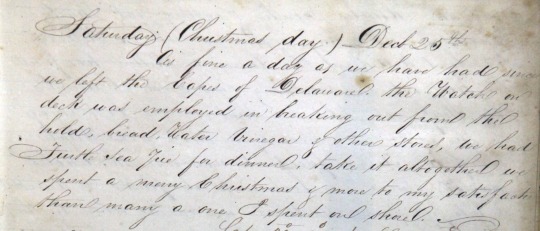 Saturday (Christmas day.) Dec 25th.
As fine a day as we have had since
we left the Capes of Delaware. the Watch on
deck was employed in breaking out from the
hold, bread, Water Vinegar & other stores, we had
Fresh Sea Pie for dinner, take it altogether we
spent a merry Christmas & more to my satisfact
than many a one I spent on shore.